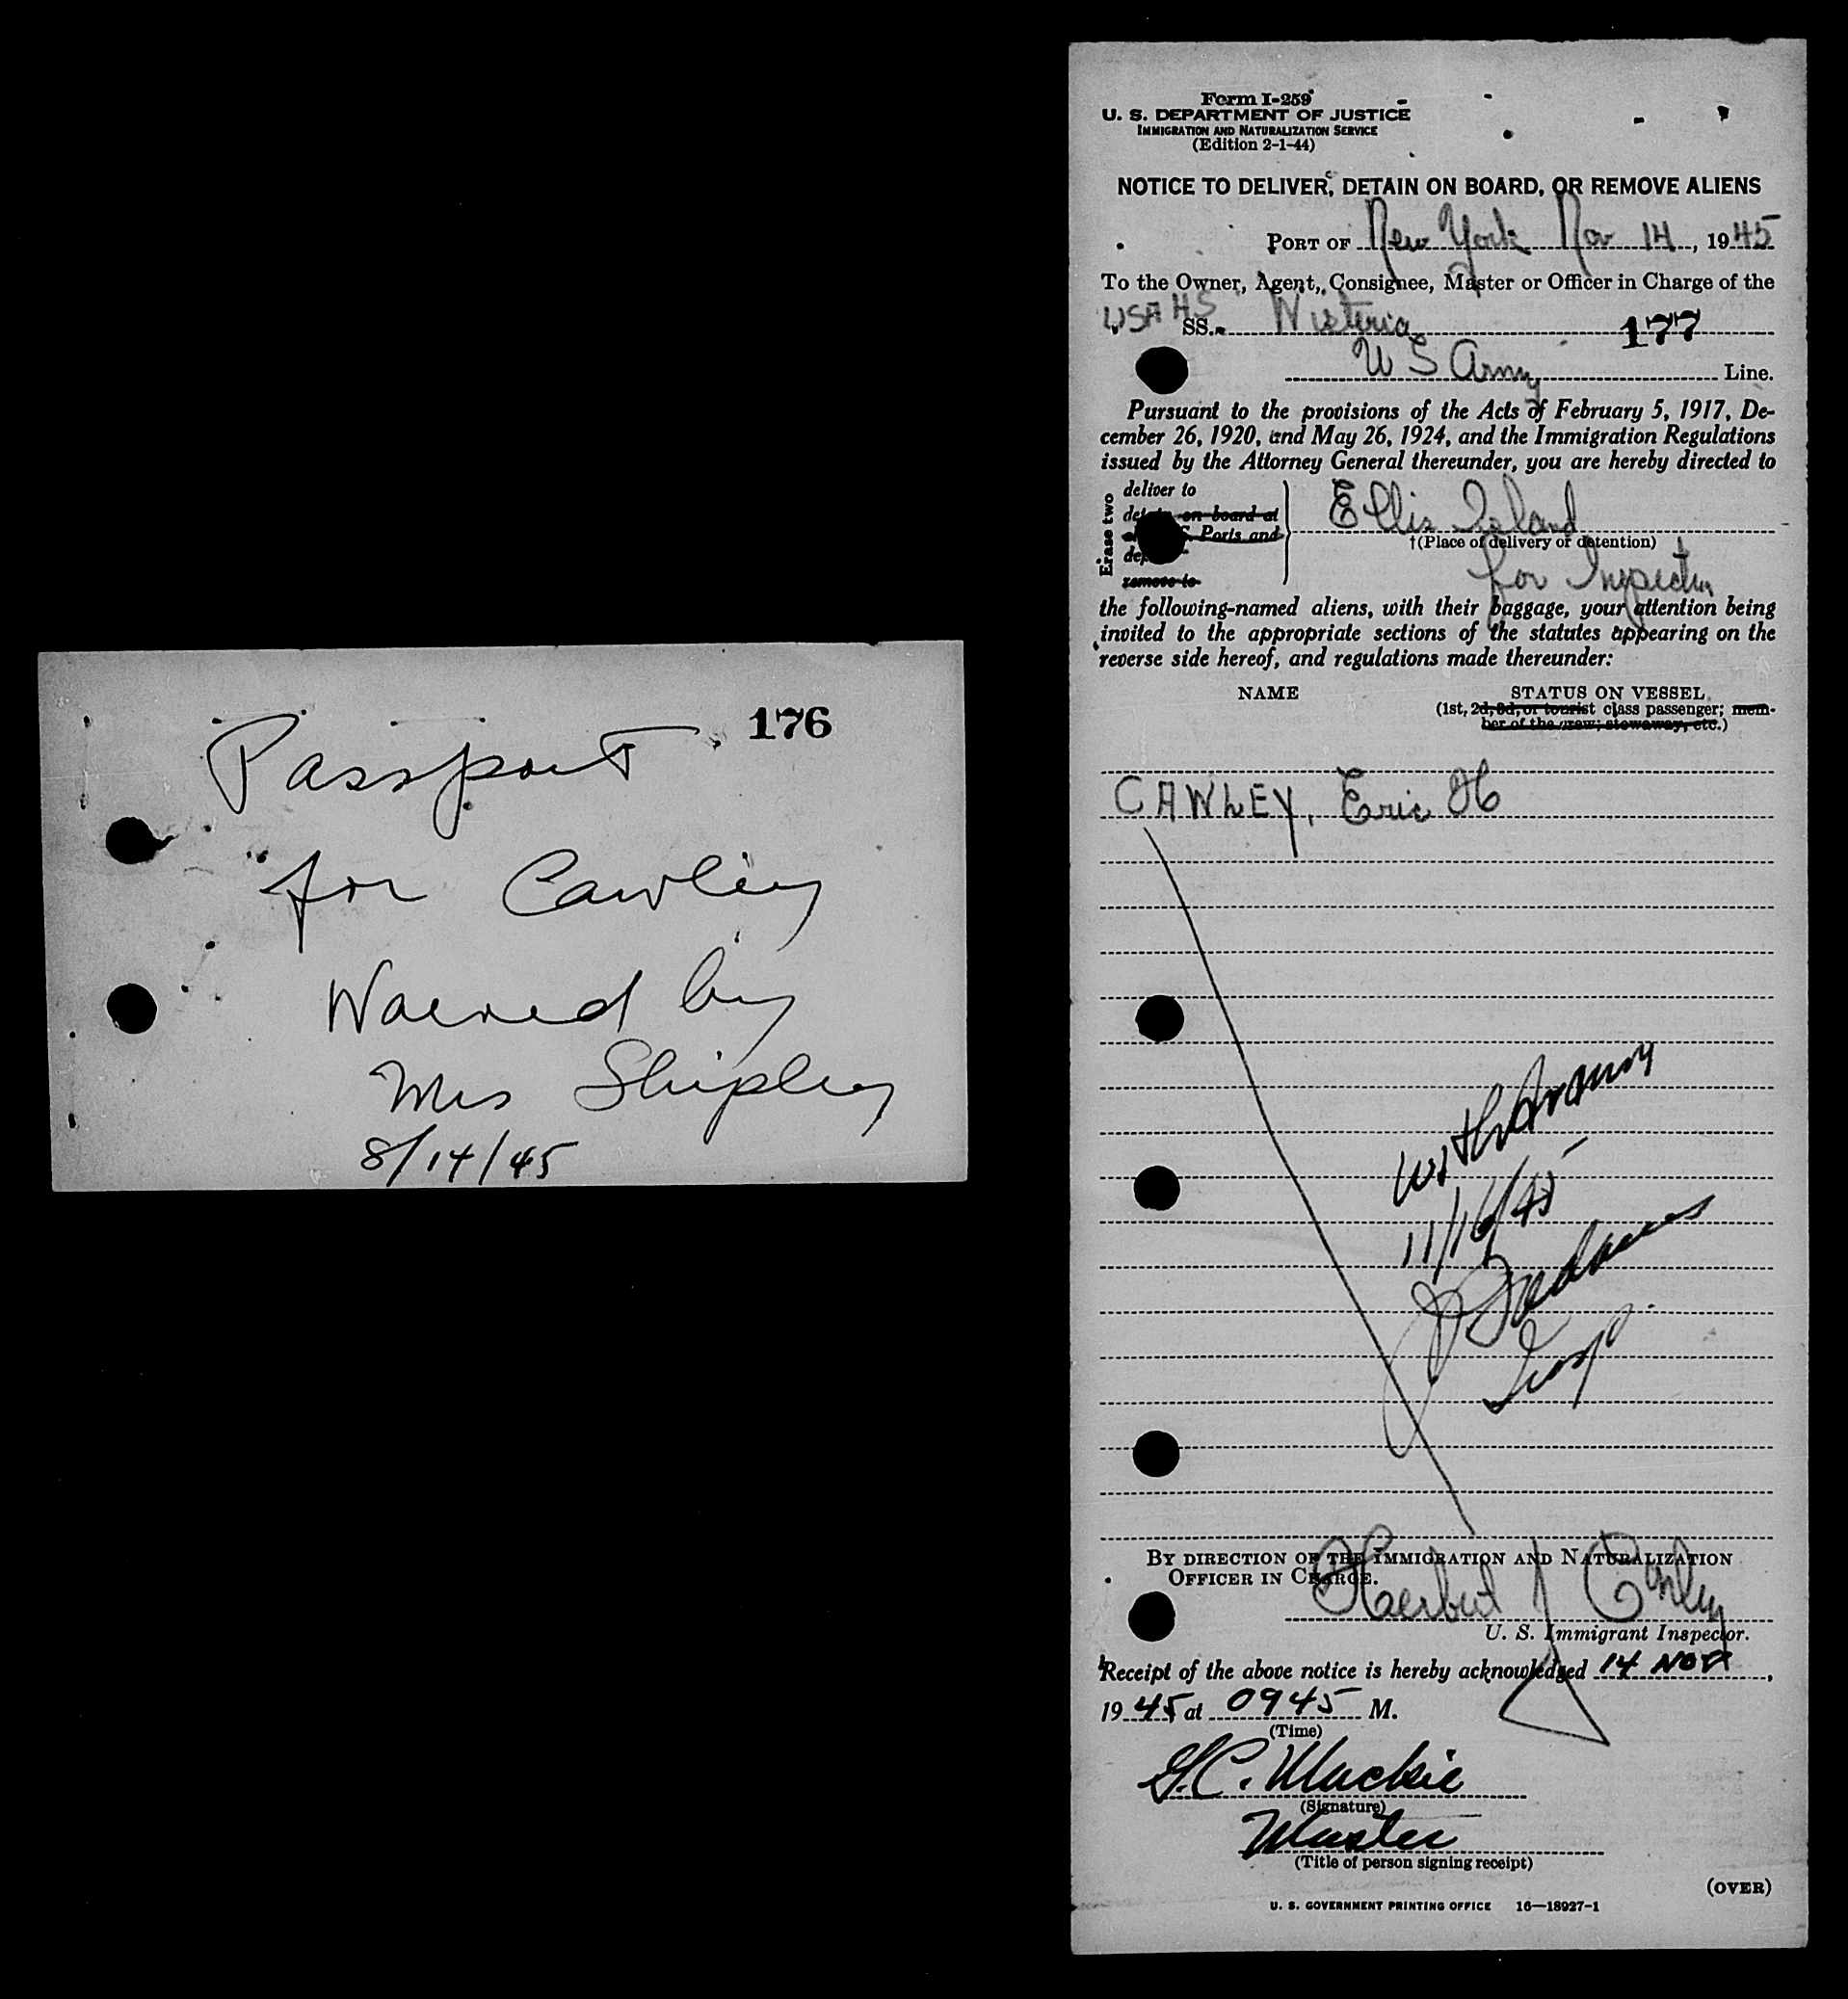 176
Passport
for Cawley
Waived by
Mrs Shipley
8/14/45
Form I-259
U. S. DEPARTMENT OF JUSTICE
IMMIGRATION AND NATURALIZATION SERVICE
(Edition 2-1-44)
NOTICE TO DELIVER, DETAIN ON BOARD, OR REMOVE ALIENS
PORT OF New York Nov 14, 1945
To the Owner, Agent, Consignee, Master or Officer in Charge of the
USAHS SS. Wisteria 177
U S Army Line.
Pursuant to the provisions of the Acts of February 5, 1917, De-
cember 26, 1920, and May 26, 1924, and the Immigration Regulations
issued by the Attorney General thereunder, you are hereby directed to
Erase two
deliver to
on board at
Ports and
remove to
Ellis Island
†(Place of delivery or detention)
for Inspection
the following-named aliens, with their baggage, your attention being
invited to the appropriate sections of the statutes appearing on the
reverse side hereof, and regulations made thereunder:
NAME STATUS ON VESSEL
(1st, 2d, 3d, or tourist class passenger; mem-
ber of the crew; stowaway, etc.)
CAWLEY, Eric H
11/16/45
Insp.
BY DIRECTION OF THE IMMIGRATION AND NATURALIZATION
OFFICER IN CHARGE.
Herbert J
U. S. Immigrant Inspector.
Receipt of the above notice is hereby acknowledged 14 NOV,
1945 at 0945 M.
(Time)
G.C. Mackie
(Signature)
Master
(Title of person signing receipt)
(OVER)
U. S. GOVERNMENT PRINTING OFFICE 16—18927-1